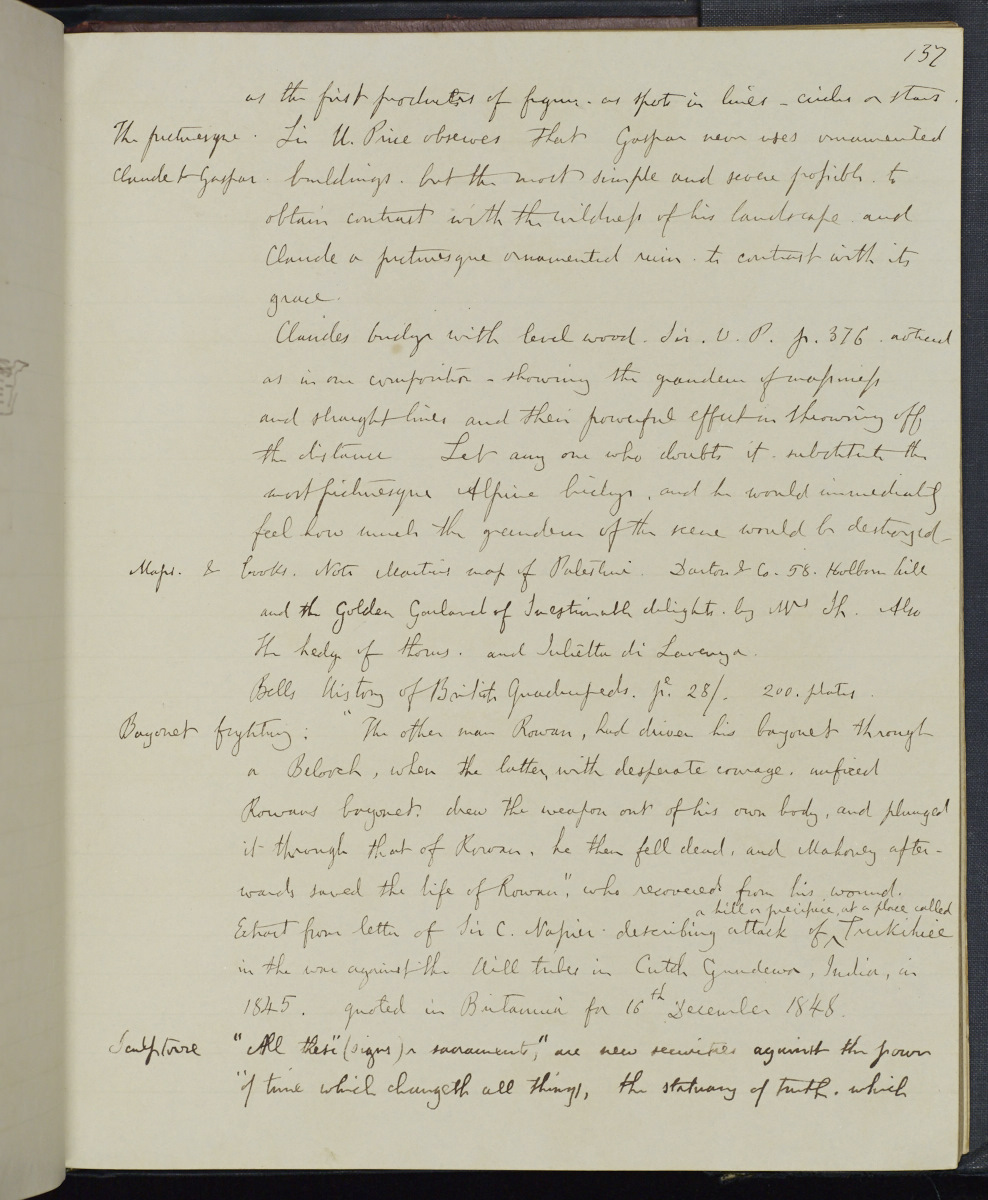 137
as the first producters of figure. as spots in lines - circles or stars.
The picturesque. Sir U. Price observes that Gaspar never uses ornamented
Claude & Gaspar. buildings. but the most simple and severe possible. to
obtain contrast with the wildness of his landscape. and
Claude a picturesque ornamented ruin. to contrast with its
grace.
Claudes bridge with level wood. Sir. U. P. p. 376. noticed
as in one composition - showing the grandeur of massiness
and straight lines and their powerful effect in throwing off
the distance Let any one who doubts it. substitute the
most picturesque Alpine bridge, and he would immediately
feel how much the grandeur of the scene would be destroyed
Maps. & books. Note Martins map of Palestine. Darton & Co. 58. Holborn hill
and the Golden Garland of Inestimable delights. by Mrs Sh. Also
The hedge of thorns. and Julietta di Lavenza.
Bells History of British Quadrupeds. pr. 28/. 200. plates.
Bayonet fighting: "The other man Rowan, had driven his bayonet through
a Belooch, when the latter, with desperate courage. unfixed
Rowans bayonet. drew the weapon out of his own body, and plunged
it through that of Rowan. he then fell dead, and Mahoney after-
wards saved the life of Rowan", who recovered from his wound.
a hill or precipice, at a place called
Extract from letter of Sir C. Napier. describing attack of Trukikee
in the war against the Hill tribes in Cutch Gundewa, India, in
1845. quoted in Britannia for 16th December 1848.
Sculpture "All these" (signs) or sacraments," are new securities against the power
"of time which changeth all things, the statuary of truth. which